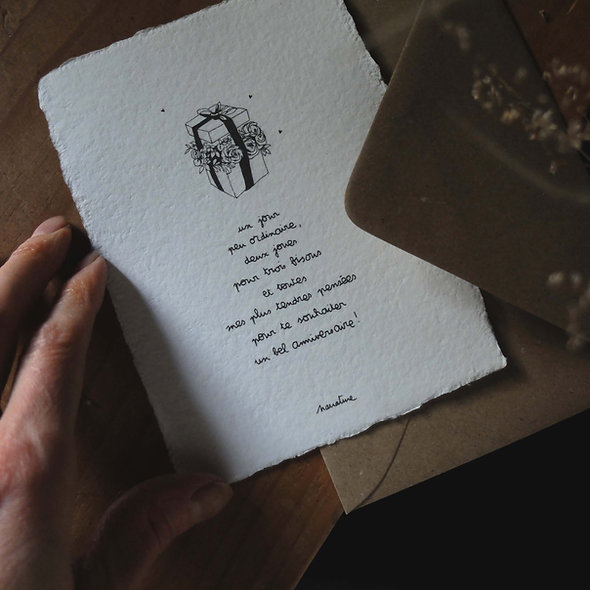 un jour
peu ordinaire,
deux joues
pour trois bisous
et toutes
mes plus tendres pensées
pour te souhaiter
un bel anniversaire !